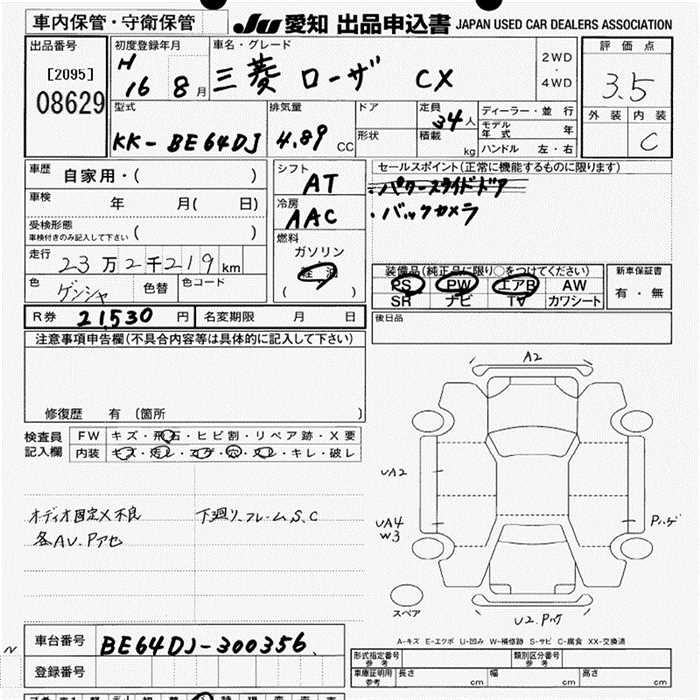 車内保管・守衛保管
JU 愛知 出品申込書 JAPAN USED CAR DEALERS ASSOCIATION
出品番号
[2095]
08629
初度登録年月
H
16 8月
車名・グレード
三菱 ローザ CX
2WD
・
4WD
評価点
3.5
外装 内装
C
型式
KK-BE64DJ
排気量
4.89 CC
ドア
形状
定員
34人
積載
kg
ディーラー・並行
モデル年式 年
ハンドル 左・右
車歴
自家用・( )
車検
年 月( 日)
受検形態
車検付きのみ記入して下さい ( )
走行
23万2千219km
色
ゲンシャ
色替
色コード
シフト
AT
冷房
AAC
燃料
ガソリン
軽油
( )
セールスポイント(正常に機能するものに限ります)
・パワースライドドア
・バックカメラ
装備品(純正品に限り○をつけてください)
PS PW エアB AW
SR ナビ TV カワシート
新車保証書
有・無
R券 21,530 円
名変期限 月 日
後日品
注意事項申告欄(不具合内容等は具体的に記入して下さい)
修復歴 有 (箇所 )
検査員
記入欄
FW キズ・飛石・ヒビ割・リペア跡・X要
内装 キズ・汚レ・コゲ・穴・スレ・キレ・破レ
オディオ固定メ不良
各AV.Pアセ
下廻り、フレームS、C
A2
UA2
UA4
W3
Pハゲ
スペア
U2.Pハゲ
A-キズ E-エクボ U-凹み W-補修跡 S-サビ C-腐食 XX-交換済
車台番号 BE64DJ-300356
登録番号
形式指定番号
参考
類別区分番号
参考
車庫証明用
参考
長さ cm
幅 cm
高さ cm